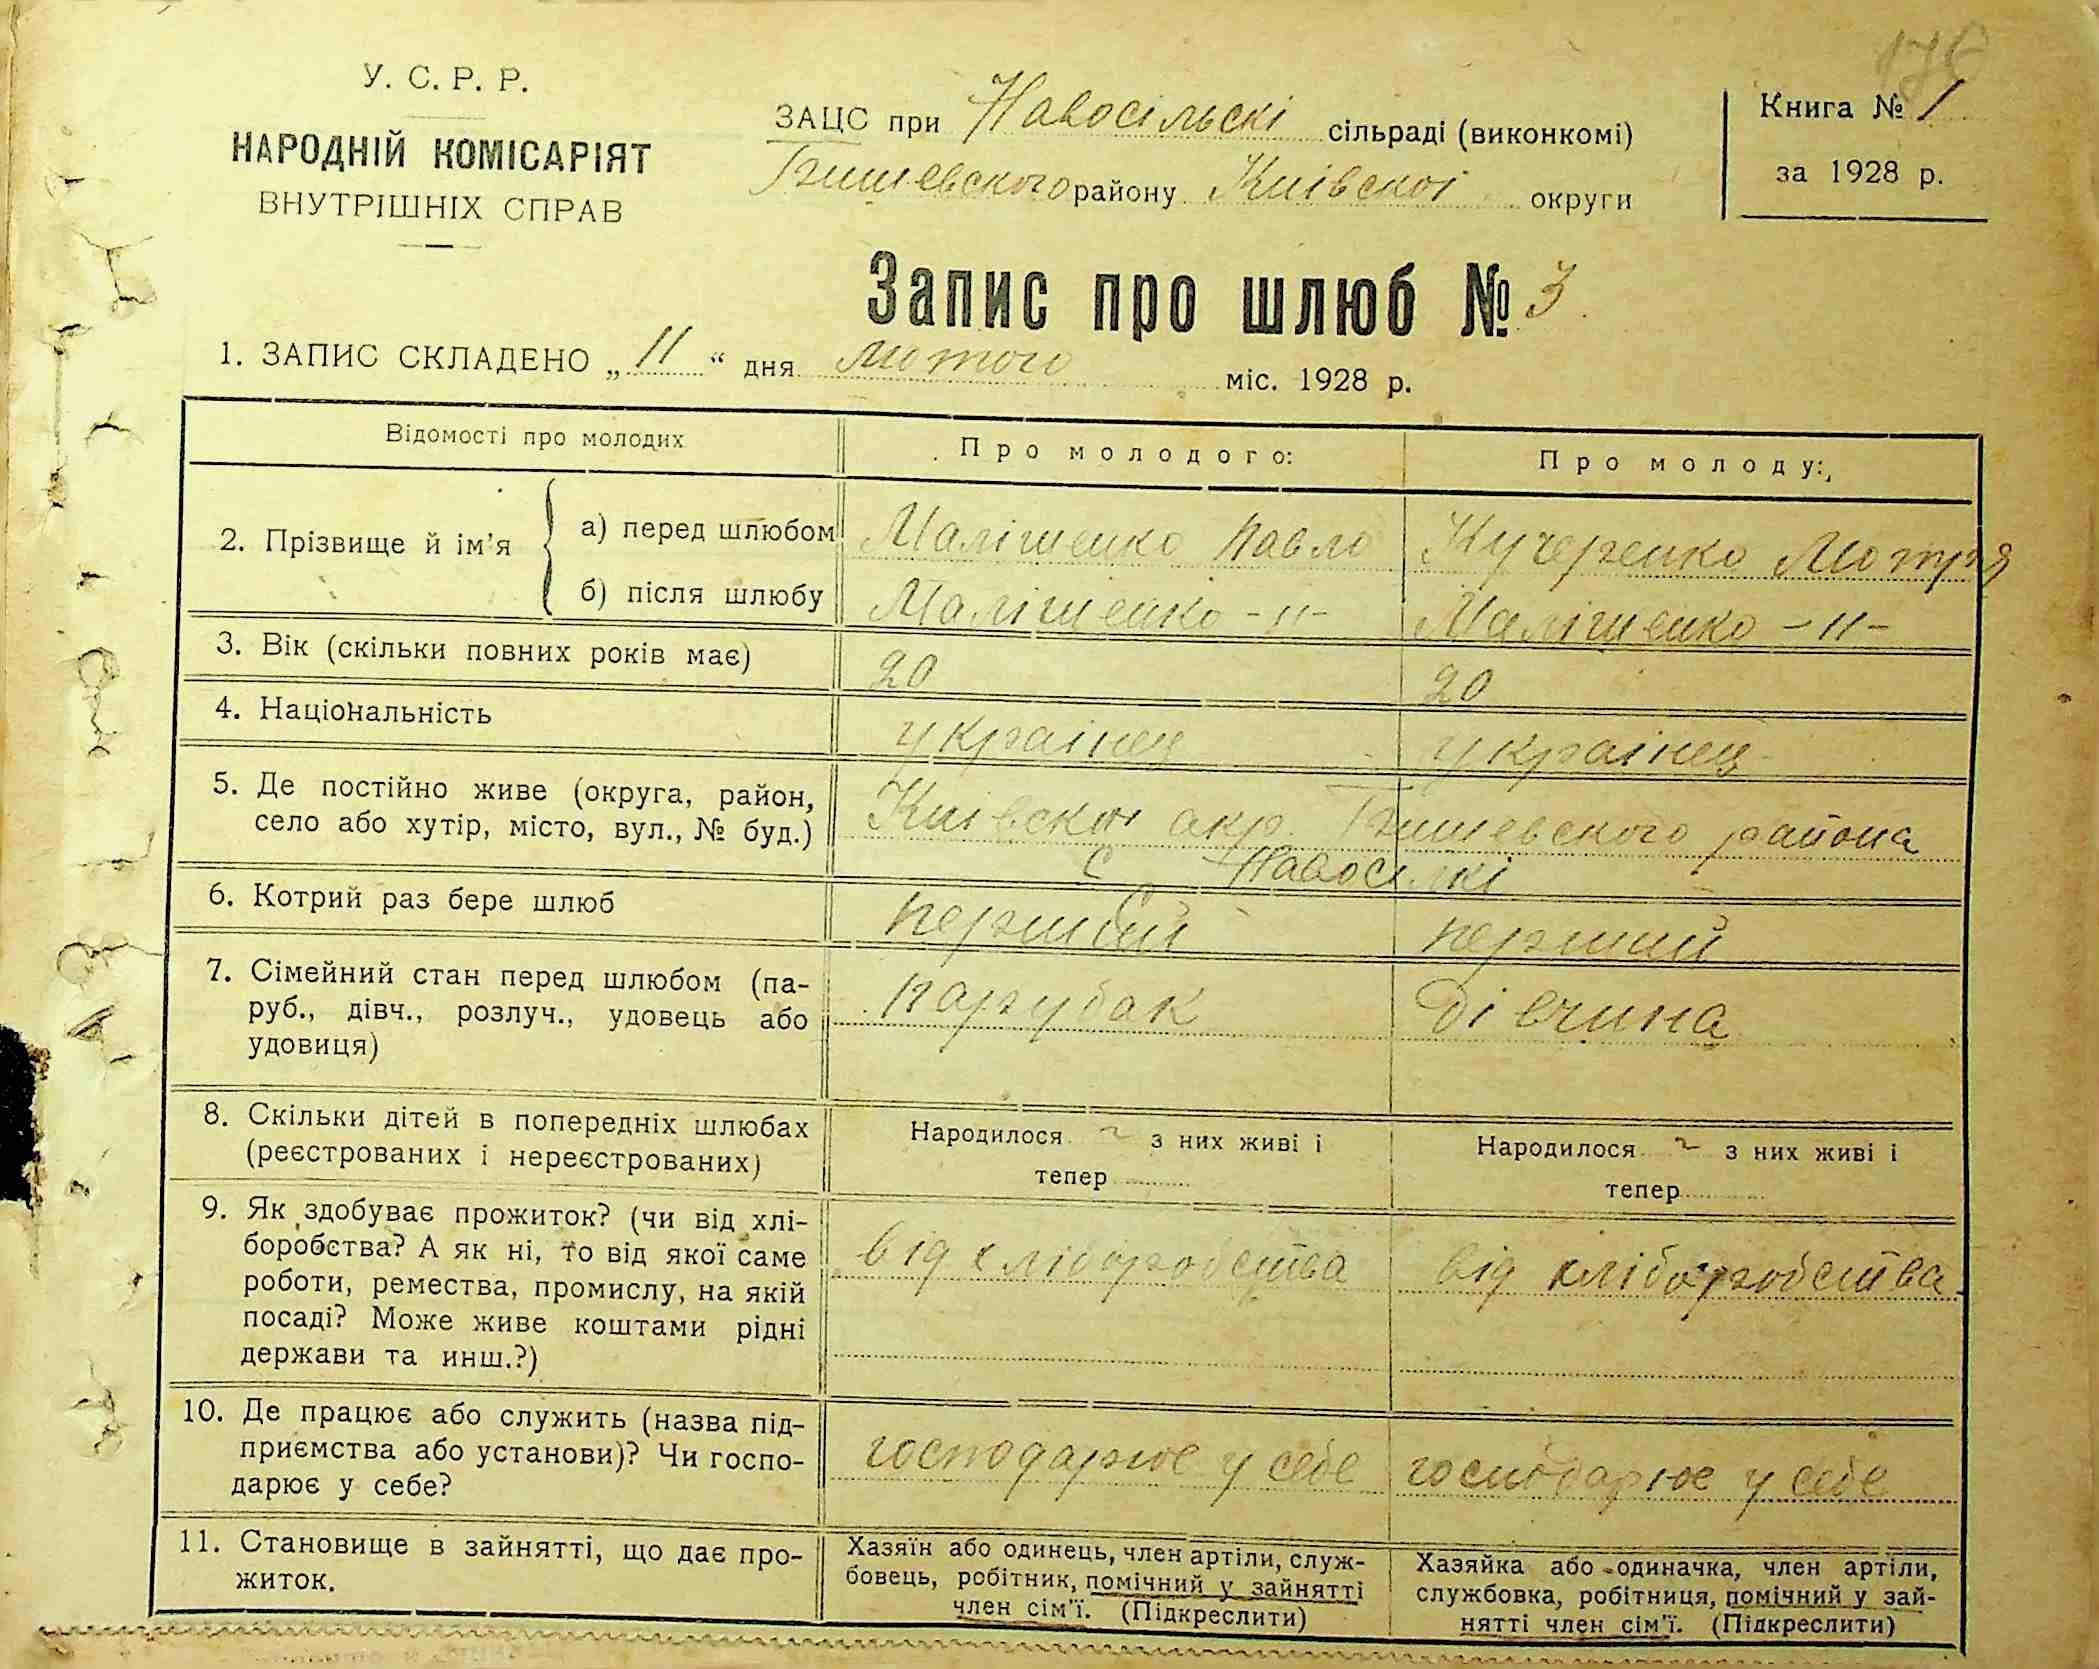 176
У. С. Р. Р.
НАРОДНІЙ КОМІСАРІЯТ
ВНУТРІШНІХ СПРАВ
ЗАЦС при Новосільскі сільраді (виконкомі)
Бишевского району Київскоі округи
Книга № 1
за 1928 р.
Запис про шлюб № 3
1. ЗАПИС СКЛАДЕНО „ 11 “ дня лютого міс. 1928 р.
Відомості про молодих
Про молодого:
Про молоду:
2. Прізвище й ім’я
а) перед шлюбом Малішенко Павло Кучеренко Мотря
б) після шлюбу Малішенко -"- Малішенко -"-
3. Вік (скільки повних років має) 20 20
4. Національність українец українец
5. Де постійно живе (округа, район, Київскоі окр. Бишевского района
село або хутір, місто, вул., № буд.) с Новосілкі
6. Котрий раз бере шлюб перший перший
7. Сімейний стан перед шлюбом (па- парубак дівчина
руб., дівч., розлуч., удовець або
удовиця)
8. Скільки дітей в попередніх шлюбах Народилося ~ з них живі і Народилося ~ з них живі і
(реєстрованих і нереєстрованих) тепер тепер
9. Як здобуває прожиток? (чи від хлі- від хліборобства від хліборобства
боробства? А як ні, то від якої саме
роботи, ремества, промислу, на якій
посаді? Може живе коштами рідні
держави та инш.?)
10. Де працює або служить (назва під- господарює у себе господарює у себе
приємства або установи)? Чи госпо-
дарює у себе?
11. Становище в зайнятті, що дає про-
житок.
Хазяїн або одинець, член артіли, служ-
бовець, робітник, помічний у зайнятті
член сім’ї. (Підкреслити)
Хазяйка або одиначка, член артіли,
службовка, робітниця, помічний у зай-
нятті член сім’ї. (Підкреслити)